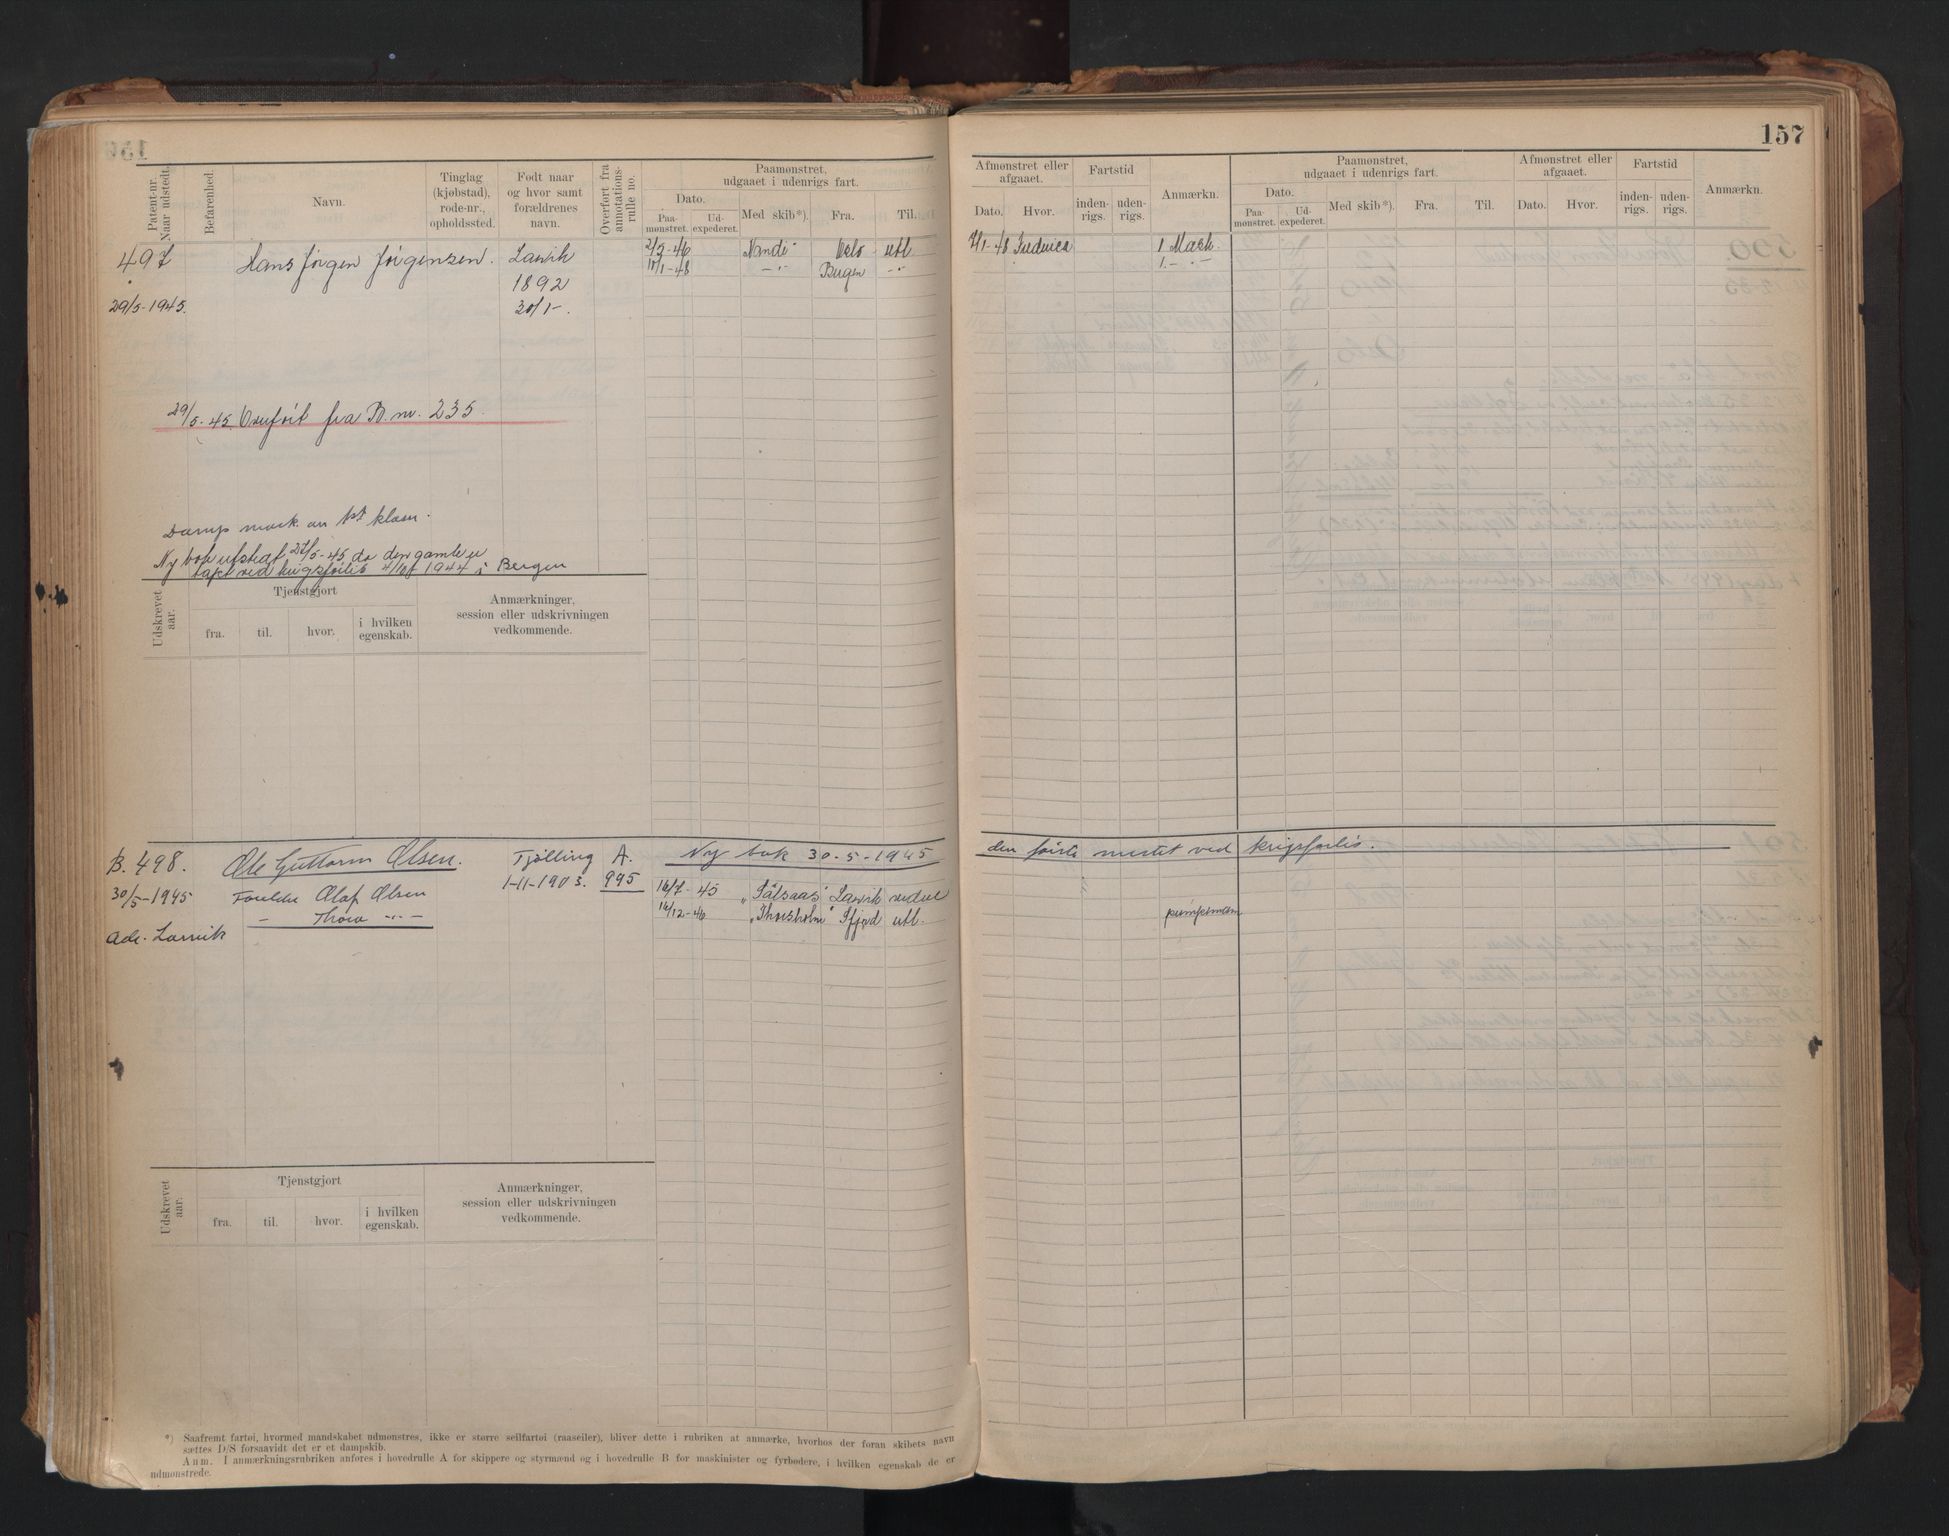 157
Patent-nr. Naar udstedt.
Befarenhed.
Navn.
Tinglag (kjøbstad), rode-nr., opholdssted.
Født naar og hvor samt forældrenes navn.
Overført fra annotations-rulle no.
Paamønstret, udgaaet i udenrigs fart.
Dato.
Paa-mønstret.
Ud-expederet.
Med skib*).
Fra.
Til.
Afmønstret eller afgaaet.
Dato.
Hvor.
Fartstid
inden-rigs.
uden-rigs.
Anmærkn.
Paamønstret, udgaaet i udenrigs fart.
Dato.
Paa-mønstret.
Ud-expederet.
Med skib*).
Fra.
Til.
Afmønstret eller afgaaet.
Dato.
Hvor.
Fartstid
inden-rigs.
uden-rigs.
Anmærkn.
497
Hans Jørgen Jørgensen.
Larvik
1892
30/1-.
2/5-46 Nandi Oslo utl
12/1-48 -"- Bergen -"-
7/1-48 Fredericia
1. Mask.
1. - " -
29/5-1945.
29/5-45. Overført fra B. nr. 235.
Damp mask. av 1st klasse.
Ny bok utstedt 29/5-45 da den gamle er
tapt ved krigsforlis 4/10 1944 i Bergen
Udskrevet aar.
Tjenstgjort
fra.
til.
hvor.
i hvilken egenskab.
Anmærkninger,
session eller udskrivningen
vedkommende.
B. 498.
Ole Guttorm Olsen.
Tjølling
1-11-1903.
A.
995
Ny bok 30-5-1945
den første mistet ved krigsforlis.
30/5-1945
Foreldre Olaf Olsen
- Thora -"-
Adr. Larvik
16/7-45 "Sålsaas" Larvik
14/12-46 "Thorsholm" Sfjord utl.
pumpemann
Udskrevet aar.
Tjenstgjort
fra.
til.
hvor.
i hvilken egenskab.
Anmærkninger,
session eller udskrivningen
vedkommende.
*) Saafremt fartøi, hvormed mandskabet udmønstres, ikke er større seilfartøi (raaseiler), bliver dette i rubriken at anmærke, hvorhos der foran skibets navn
sættes D/S forsaavidt det er et dampskib.
Anm. I anmærkningsrubriken anføres i hovedrulle A for skippere og styrmænd og i hovedrulle B for maskinister og fyrbødere, i hvilken egenskab de er
udmønstrede.